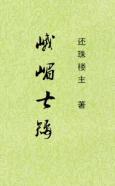 还珠楼主 著
峨嵋七矮